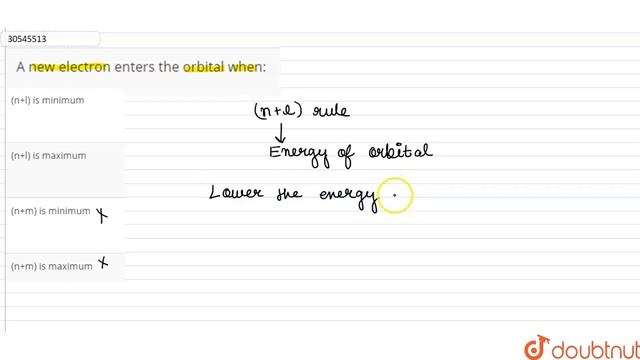 30545513
A new electron enters the orbital when:
(n+l) is minimum
(n+l) is maximum
(n+m) is minimum x
(n+m) is maximum x
(n+l) rule
↓
Energy of orbital
Lower the energy
doubtnut